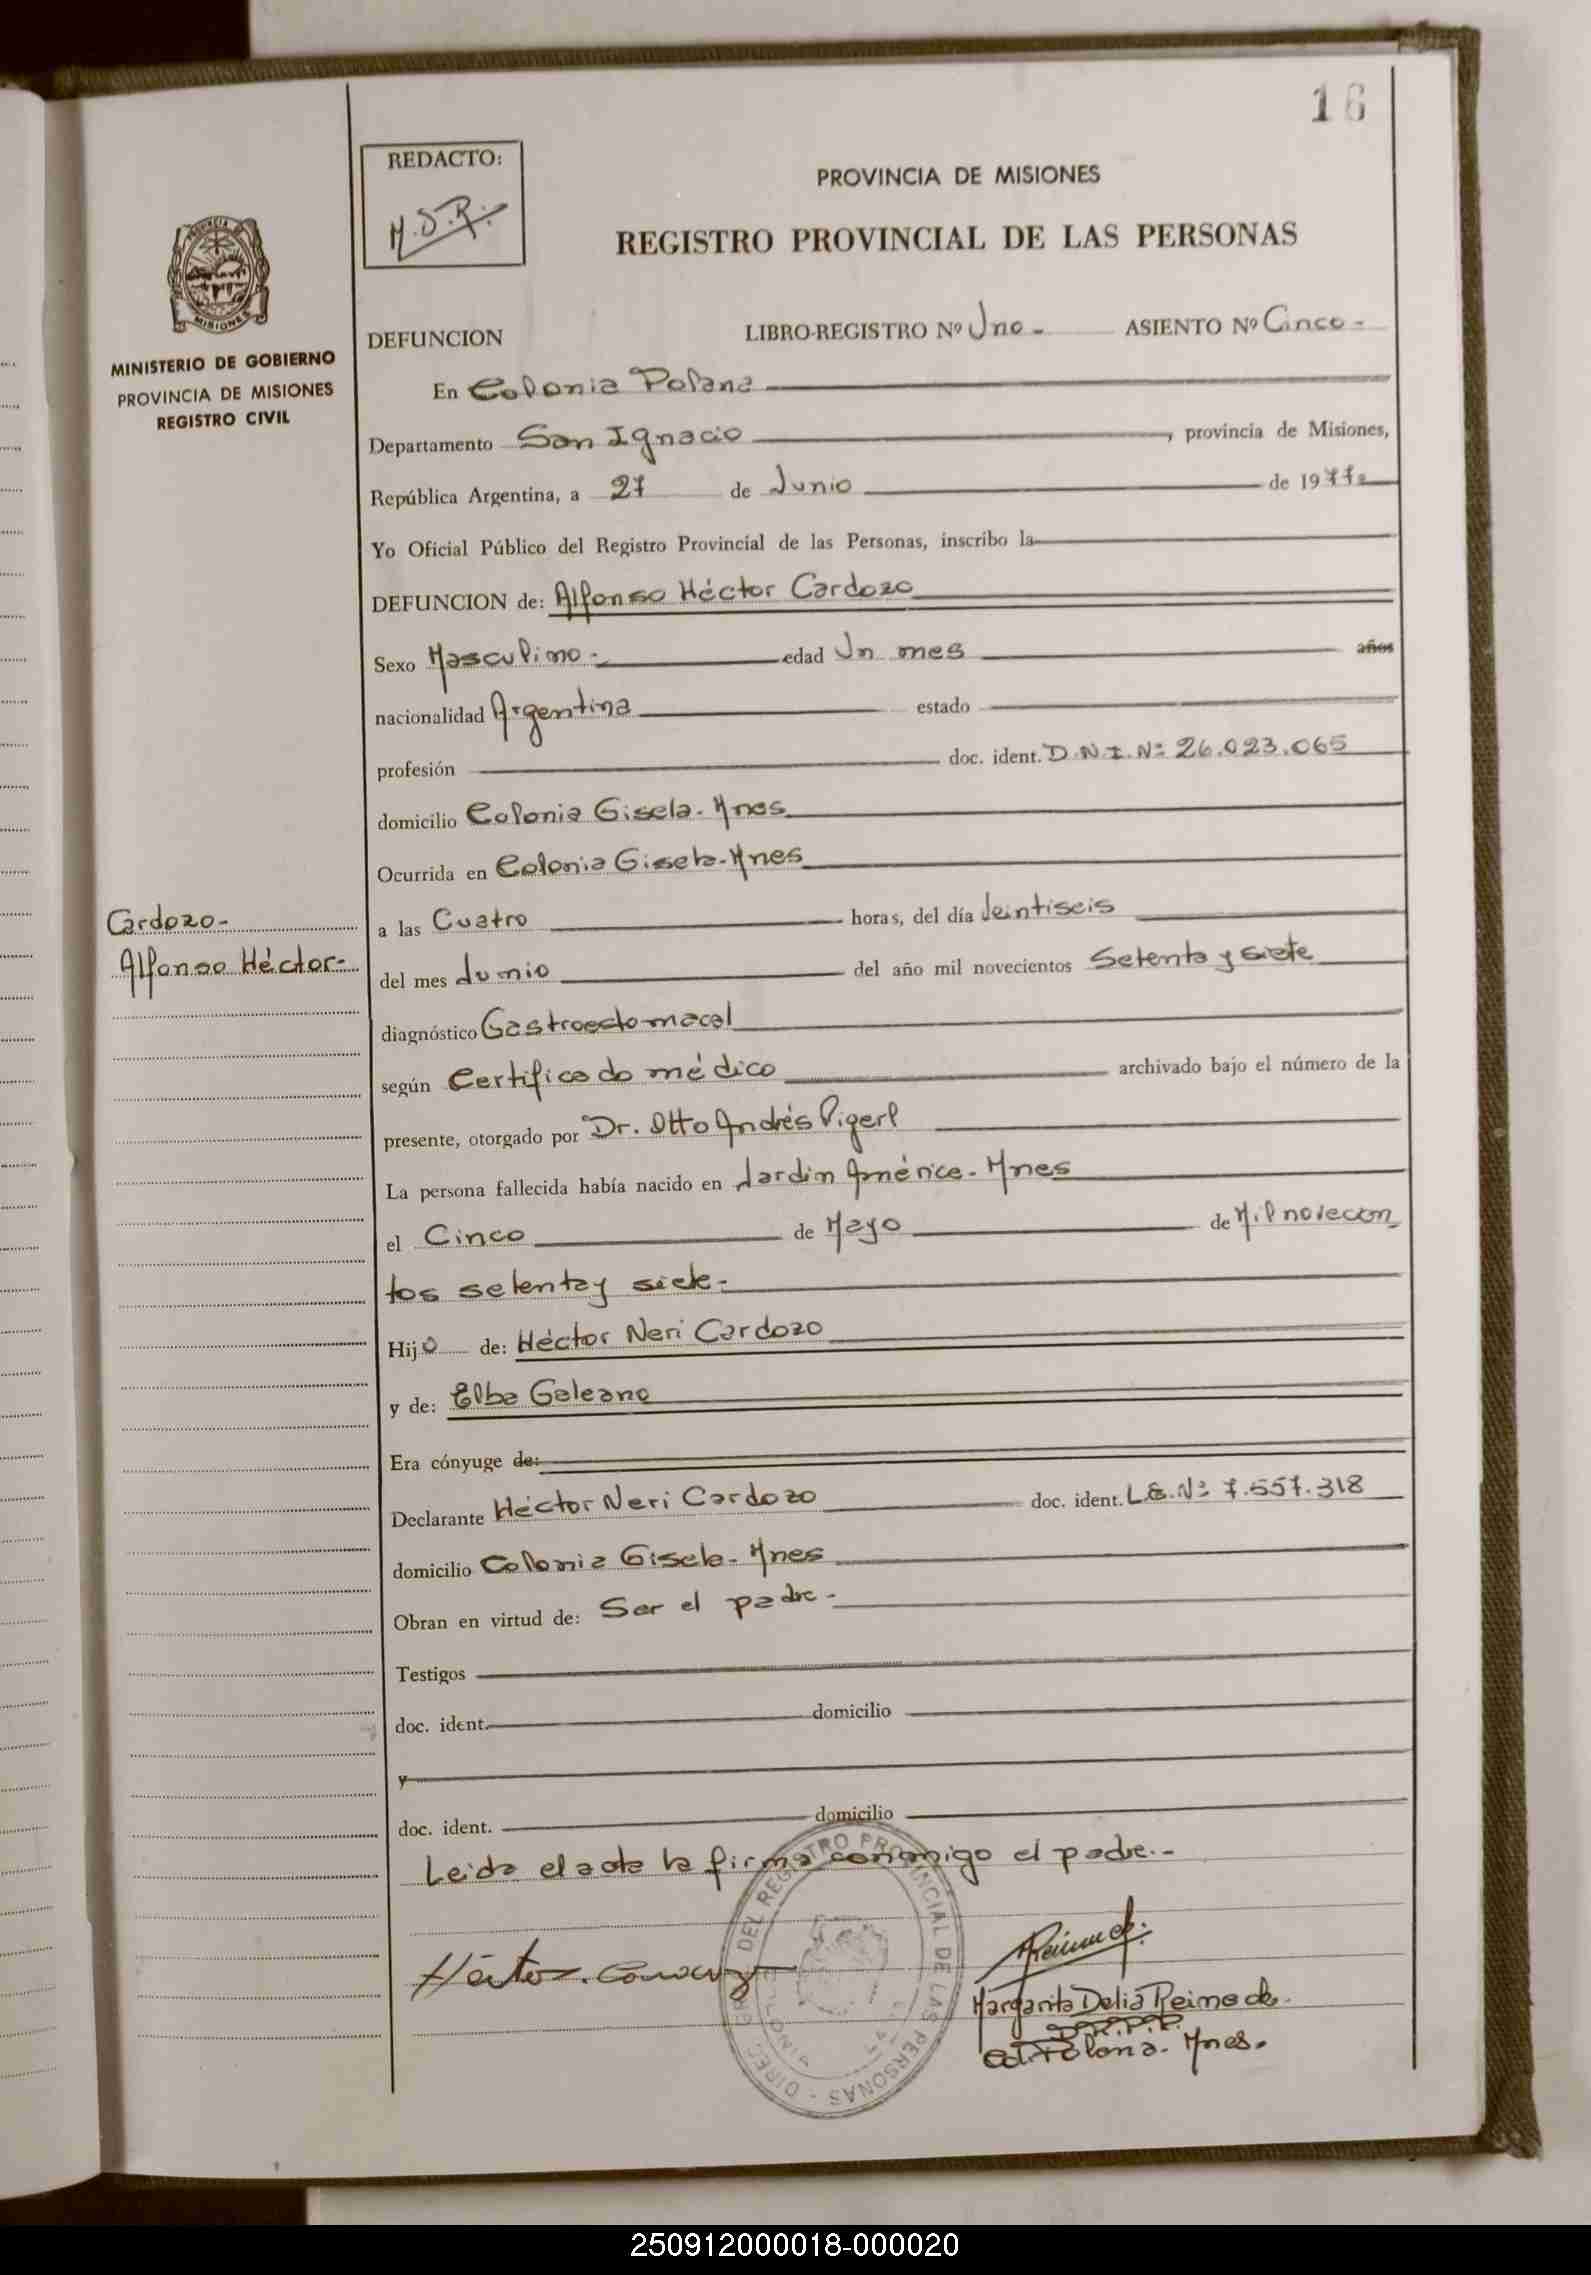 16
REDACTO:
M.D.R.
PROVINCIA DE MISIONES
REGISTRO PROVINCIAL DE LAS PERSONAS
MISIONES
MINISTERIO DE GOBIERNO
PROVINCIA DE MISIONES
REGISTRO CIVIL
DEFUNCION LIBRO-REGISTRO Nº Uno - ASIENTO Nº Cinco -
En Colonia Polana
Departamento San Ignacio, provincia de Misiones,
República Argentina, a 27 de Junio de 1977
Yo Oficial Público del Registro Provincial de las Personas, inscribo la
DEFUNCION de: Alfonso Héctor Cardozo
Sexo Masculino - edad Un mes años
nacionalidad Argentina estado
profesión doc. ident. D.N.I. Nº 26.023.065
domicilio Colonia Gisela - Mnes
Ocurrida en Colonia Gisela - Mnes
Cardozo -
Alfonso Héctor -
a las Cuatro horas, del día Veintiseis
del mes Junio del año mil novecientos Setenta y siete
diagnóstico
según Certificado médico archivado bajo el número de la
presente, otorgado por Dr. Otto Andrés Pigerl
La persona fallecida había nacido en Jardin América - Mnes
el Cinco de Mayo de Mil novecien
tos setenta y siete -
Hijo de: Héctor Neri Cardozo
y de: Elba Galeano
Era cónyuge de:
Declarante Héctor Neri Cardozo doc. ident. L.E. Nº 7.557.318
domicilio Colonia Gisela - Mnes
Obran en virtud de: Ser el padre -
Testigos
doc. ident. domicilio
y
doc. ident. domicilio
Leida el acta la firma conmigo el padre. -
DIREC GRAL DEL REGISTRO PROVINCIAL DE LAS PERSONAS
Héctor
Margarita Delia Reimo de
Col. Polana - Mnes.
250912000018-000020